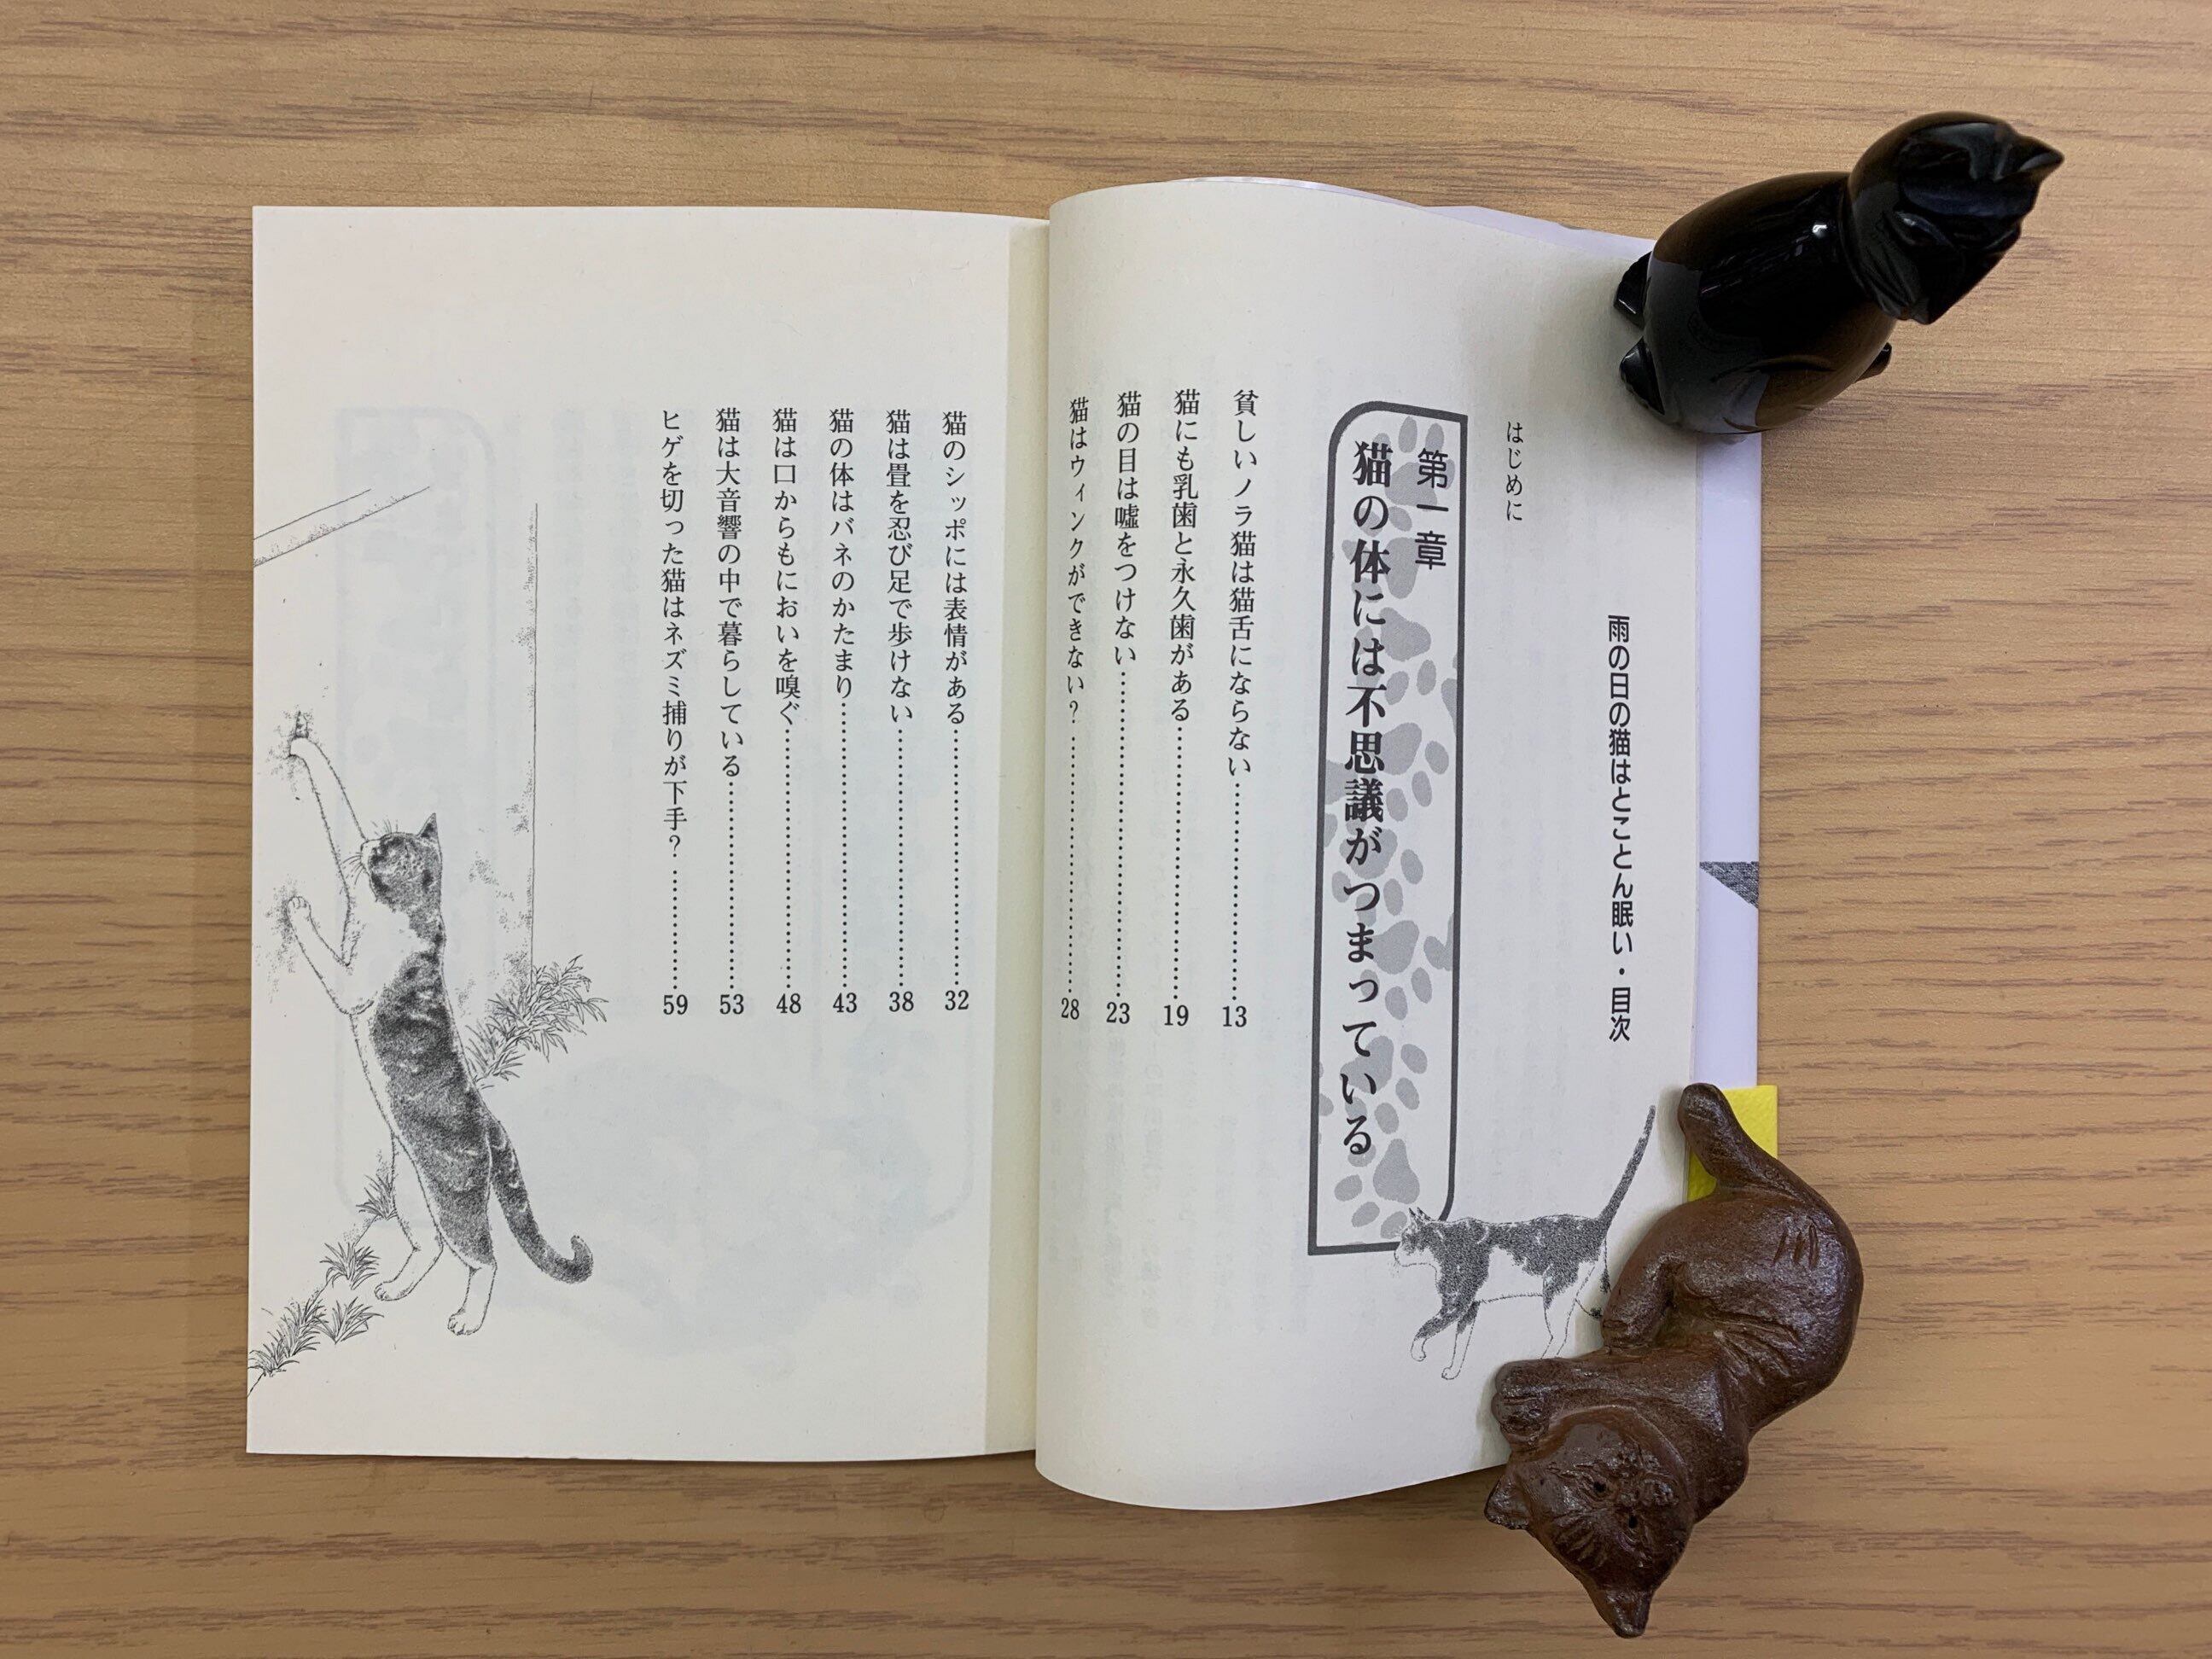 雨の日の猫はとことん眠い・目次
はじめに
第一章
猫の体には不思議がつまっている
貧しいノラ猫は猫舌にならない……………………13
猫にも乳歯と永久歯がある……………………19
猫の目は嘘をつけない……………………23
猫はウィンクができない？……………………28
猫のシッポには表情がある……………………32
猫は畳を忍び足で歩けない……………………38
猫の体はバネのかたまり……………………43
猫は口からもにおいを嗅ぐ……………………48
猫は大音響の中で暮らしている……………………53
ヒゲを切った猫はネズミ捕りが下手？……………59